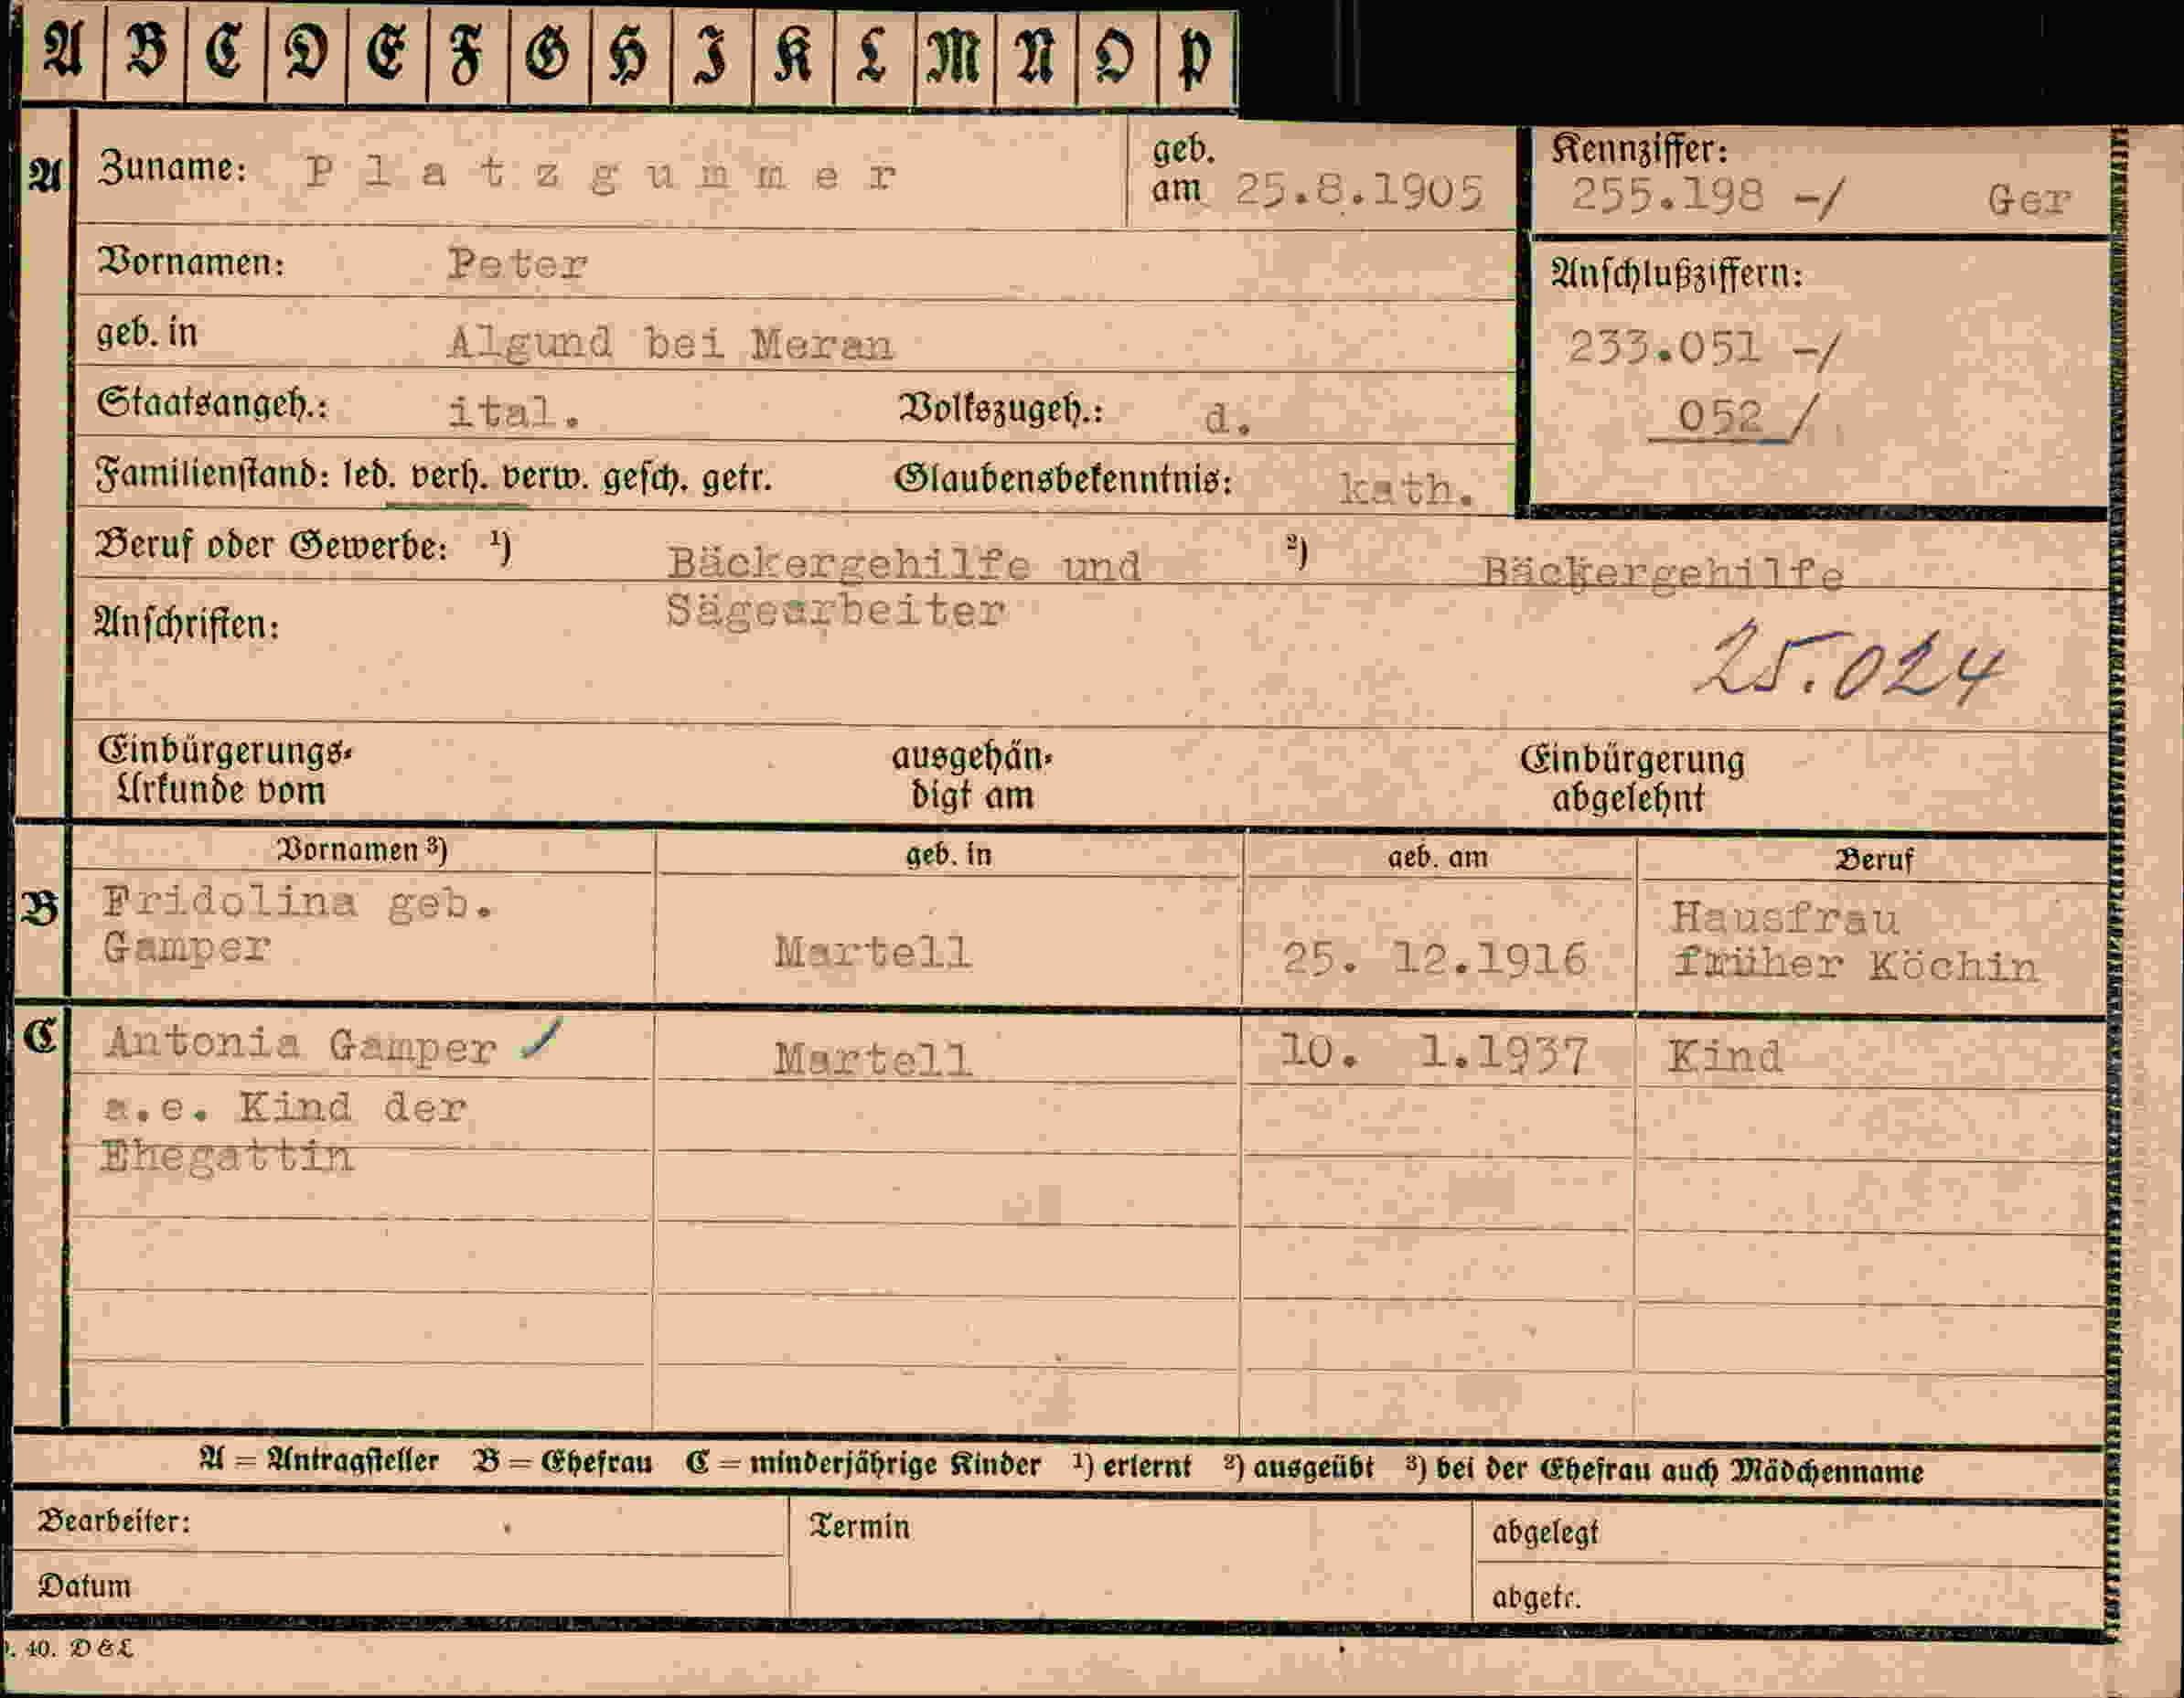 A B C D E F G H I K L M N O P
A Zuname: Platzgummer geb. am 25.8.1905 Kennziffer: 255.198 -/ Ger
Vornamen: Peter Anschlußziffern:
geb. in Algund bei Meran 233.051 -/
Staatsangeh.: ital. Volkszugeh.: d. 052 /
Familienstand: led. verh. verw. gesch. getr. Glaubensbekenntnis: kath.
Beruf oder Gewerbe: ¹) Bäckergehilfe und ²) Bäckergehilfe
Anschriften: Sägearbeiter
25.024
Einbürgerungs- ausgehän- Einbürgerung
Urkunde vom digt am abgelehnt
Vornamen ³) geb. in geb. am Beruf
B Fridolina geb. Hausfrau
Gamper Martell 25. 12.1916 früher Köchin
C Antonia Gamper Martell 10. 1.1937 Kind
a.e. Kind der
Ehegattin
A = Antragsteller B = Ehefrau C = minderjährige Kinder ¹) erlernt ²) ausgeübt ³) bei der Ehefrau auch Mädchenname
Bearbeiter: Termin abgelegt
Datum abgetr.
. 40. D & L